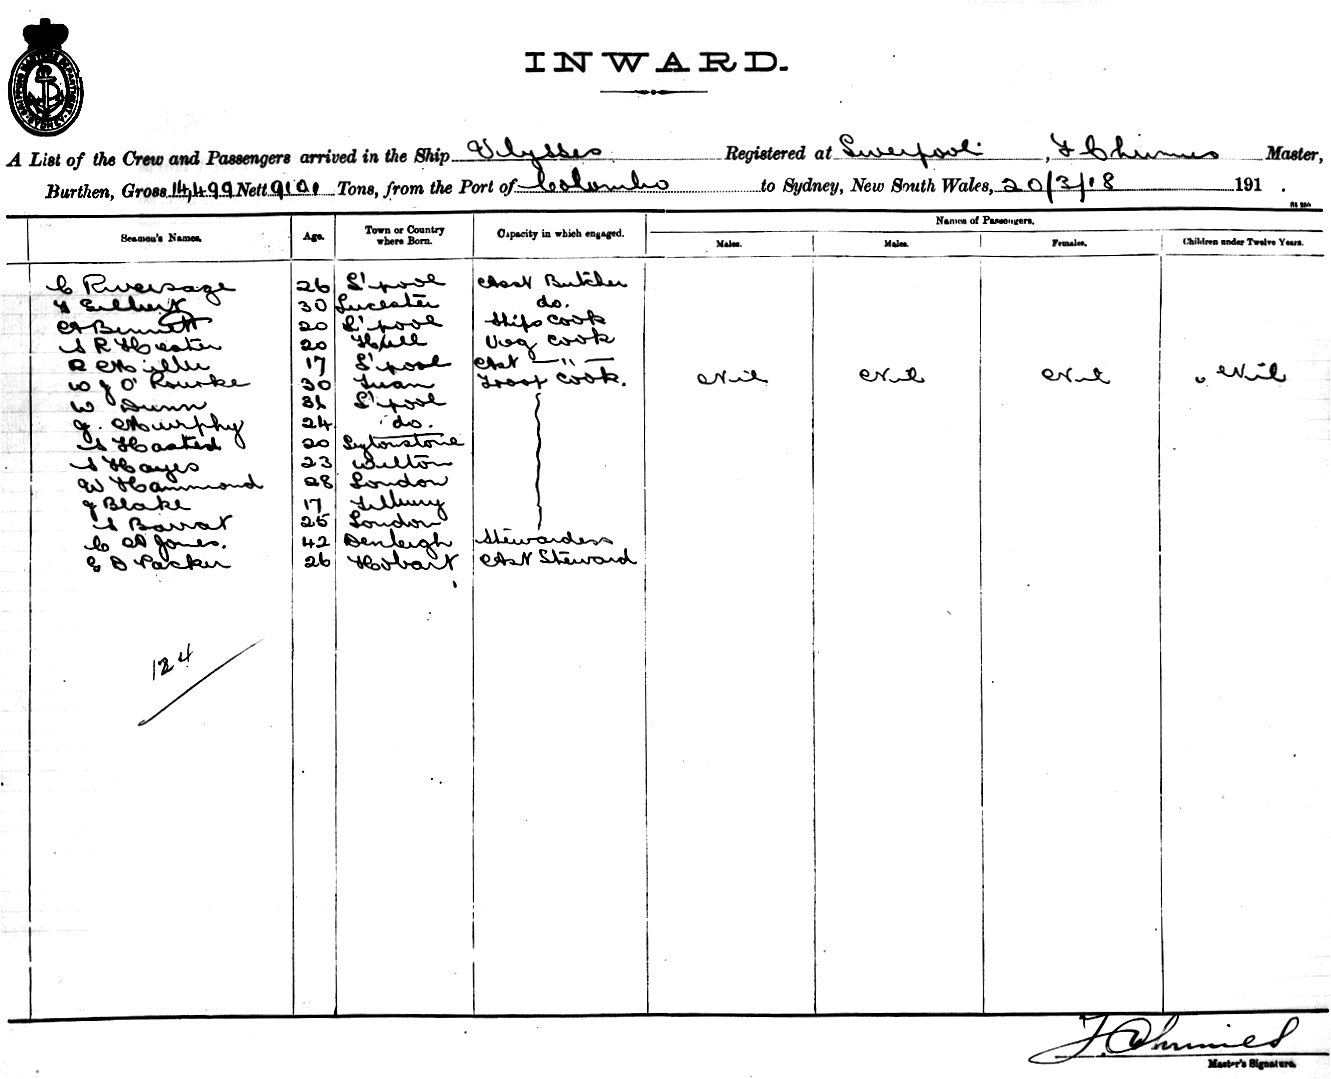 INWARD.
SHIPPING MASTERS DEPARTMENT SYDNEY
A List of the Crew and Passengers arrived in the Ship Ulysses Registered at Liverpool, F Chrimes Master,
Burthen, Gross 14,499 Nett 9101 Tons, from the Port of Colombo to Sydney, New South Wales, 20/3/18 191 .
Names of Passengers.
Seamen's Names. Age. Town or Country where Born. Capacity in which engaged. Males. Males. Females. Children under Twelve Years.
C Riversage 26 L'pool Asst Butcher
F Gilbert 30 Leicester do.
A Bennett 20 L'pool Ships Cook
S R Hester 20 Hull Veg Cook
R Miller 17 L'pool Asst — " —
W J O'Rourke 30 Troop Cook. Nil Nil Nil Nil
W Dunn 31 L'pool
J. Murphy 24 do.
S Hasted 20 Leytonstone
S Hayes 23 Wilton
W Hammond 28 London
J Blake 17 Tilbury
S Barrat 25 London
C A Jones. 42 Denbigh Stewardess
G D Packer 26 Hobart Asst Steward
124
F. Chrimes
Master's Signature.